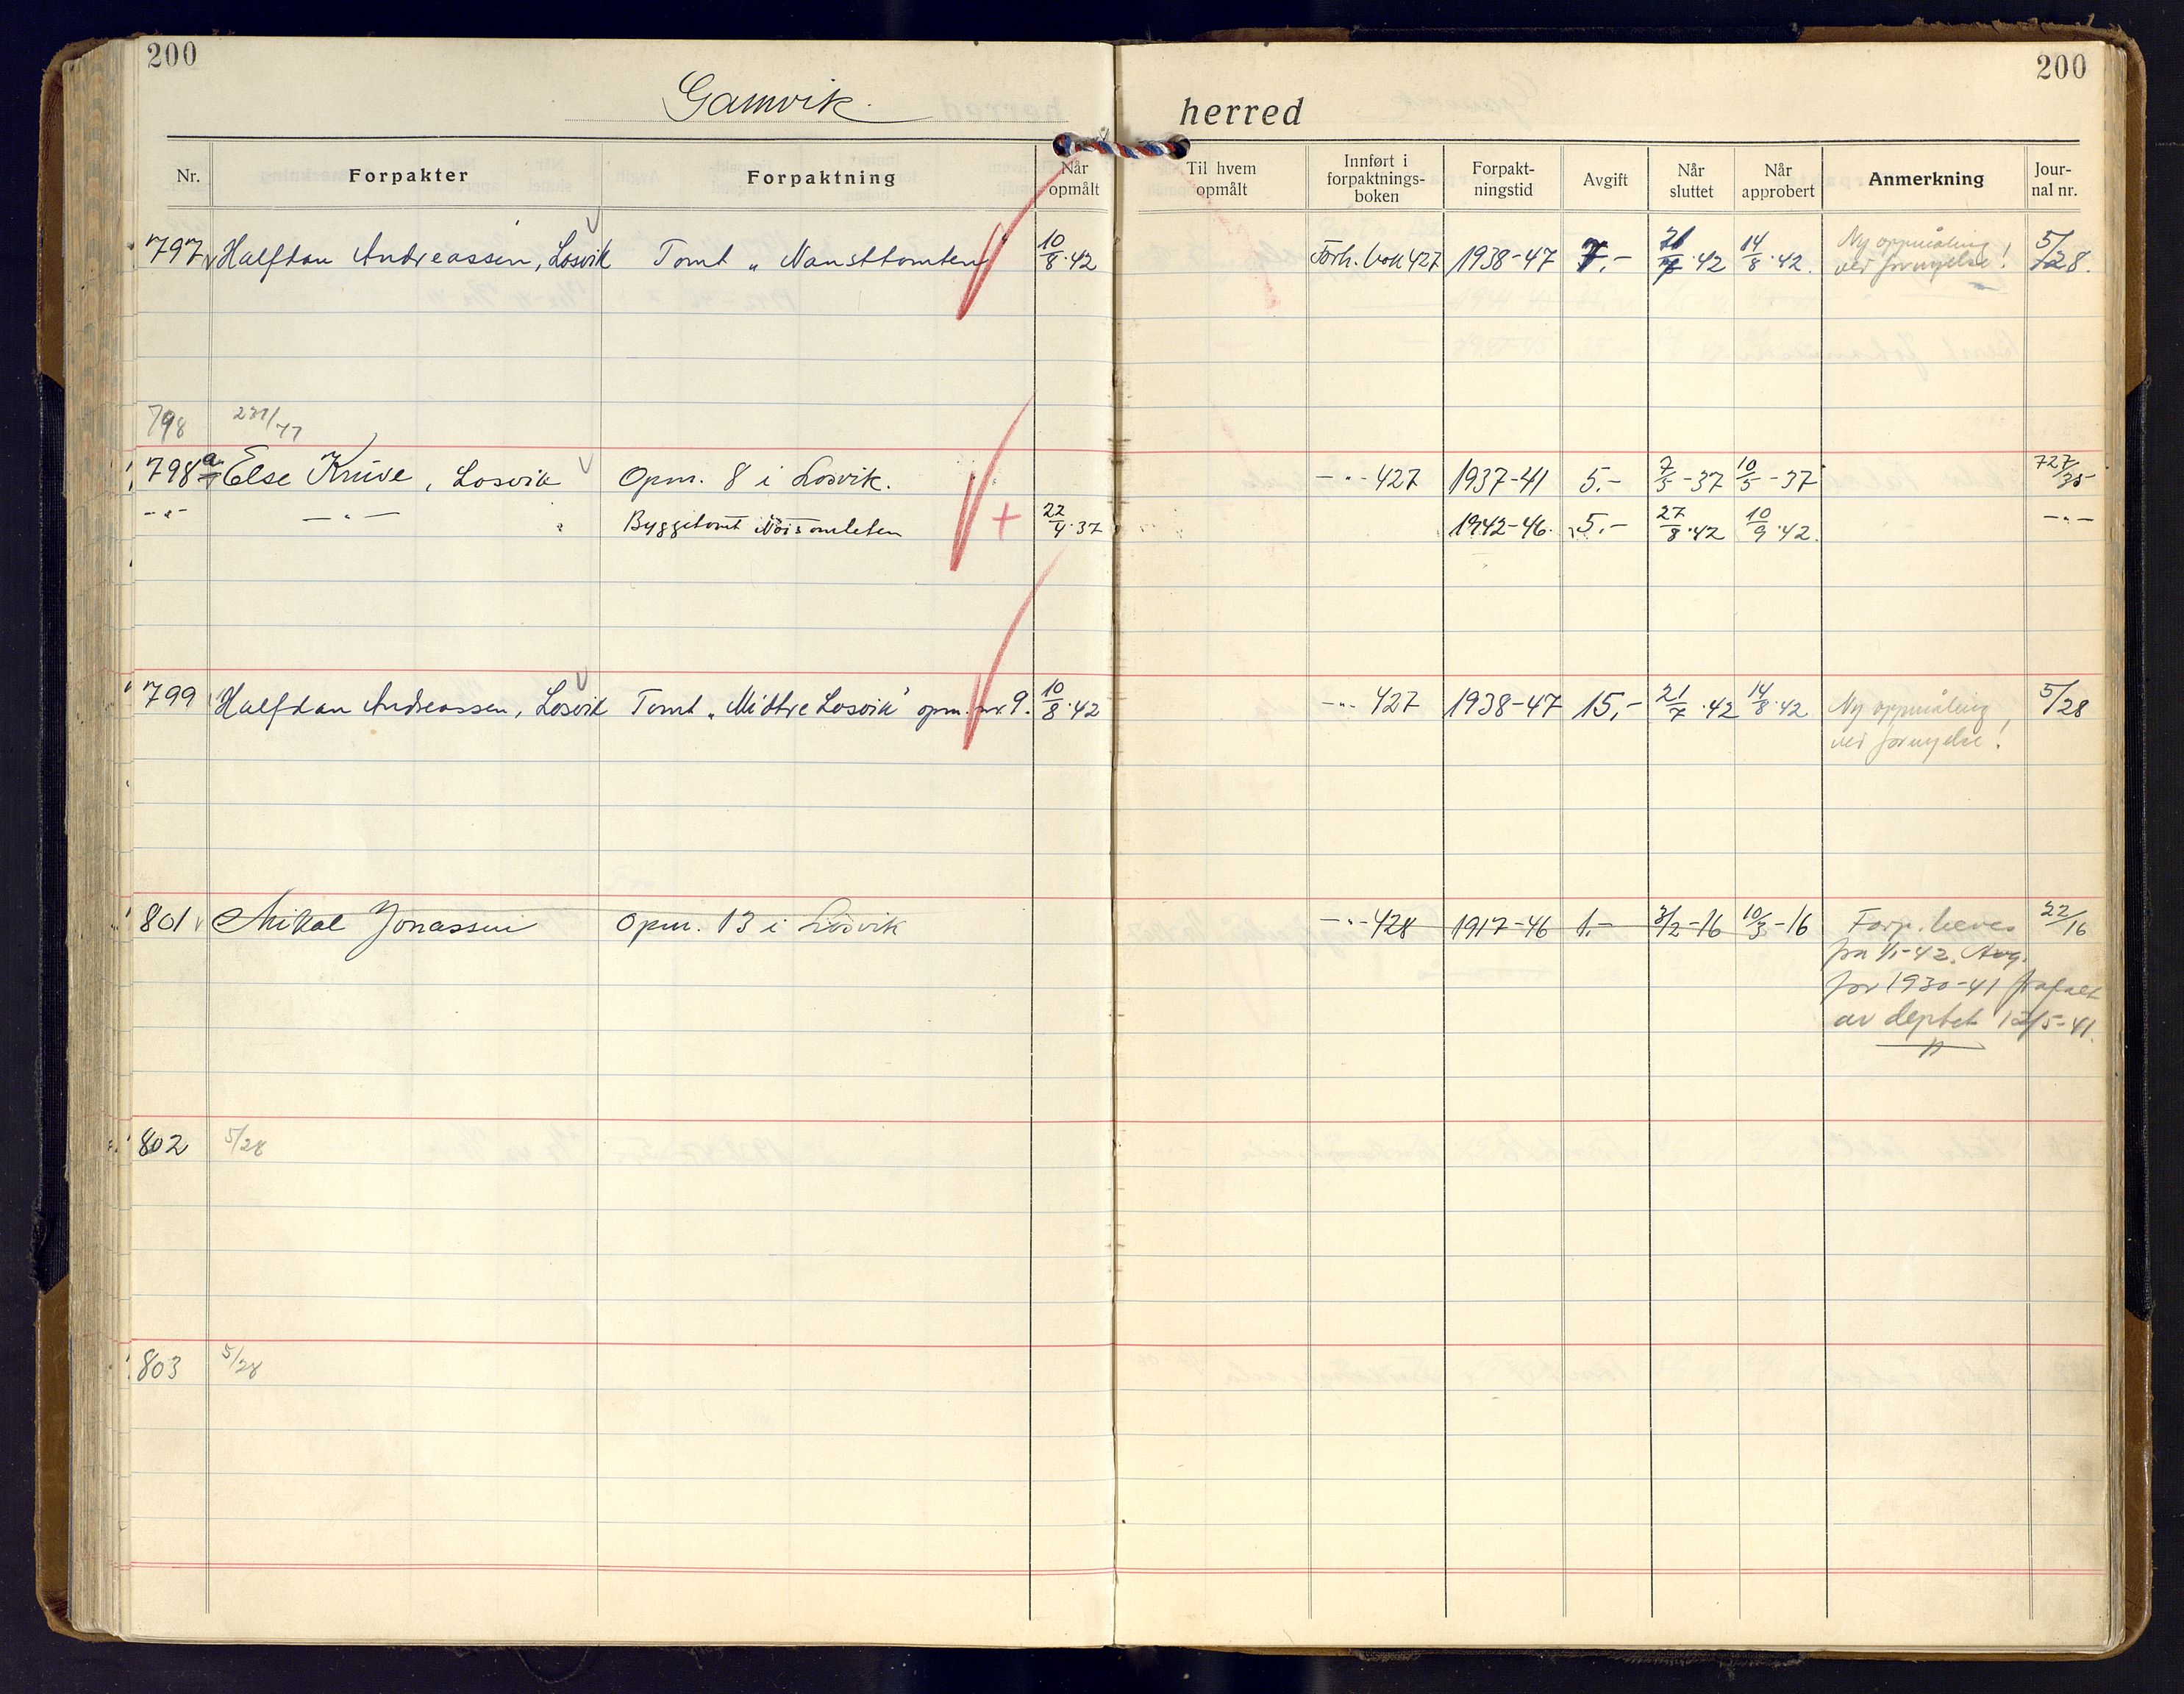 200
200
Gamvik herred
Nr. Forpakter Forpaktning Når opmålt Til hvem opmålt Innført i forpaktnings-boken Forpakt-ningstid Avgift Når sluttet Når approbert Anmerkning Jour-nal nr.
797 Halfdan Andreassen, Losvik Tomt „Nausttomten" 10/8·42 Forh. bok 427 1938-47 7.- 21/7·42 14/8·42. Ny oppmåling 5/28.
ved fornyelse!
798 231/77
798a Else Kruve, Losvik Opm. 8 i Losvik. -"- 427 1937-41 5.- 7/5-37 10/5-37 727/35
-"- -"- Byggetomt 22/4·37 1942-46. 5.- 27/8·42 10/9·42. -"-
799 Halfdan Andreassen, Losvik Tomt „Midtre Losvik" opm. nr. 9. 10/8·42 -"- 427 1938-47 15,- 21/7·42 14/8·42 Ny oppmåling 5/28
ved fornyelse!
801 Mikal Jonassen Opm. 13 i Losvik -"- 428 1917-46 1.- 3/2-16 10/3-16 Forp. heves 22/16
fra 1/1-42. Avg.
for 1930-41 frafalt
av deptet 12/5-41.
802 5/28
803 5/28